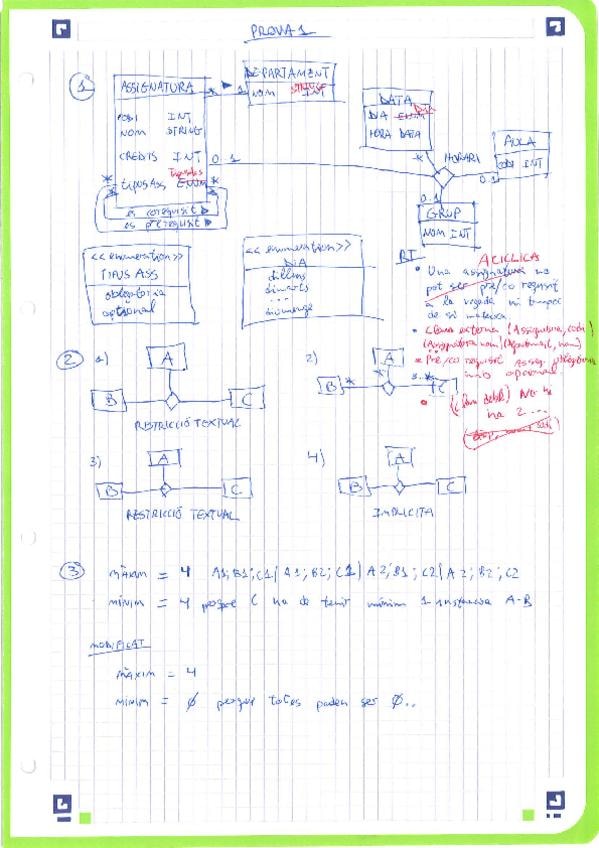 PROVA 1
1
ASSIGNATURA
CODI INT
NOM STRING
CREDITS INT
TipusAss
TIPUSASS ENUM
es corequisit
es prerequisit
*
1
DEPARTAMENT
NOM INT
STRING
DATA
DIA ENUM
Dia
HORA DATA
*
HORARI
AULA
CODI INT
0..1
0..1
0..1
GRUP
NOM INT
<< enumeration >>
TIPUS ASS
obligatoria
optional
<< enumeration >>
DIA
dilluns
dimarts
...
diumenge
RT
ACICLICA
• Una assignatura no
pot ser pre/co requisit
a la vegada ni tampoc
de si mateixa.
• Claus externa (Assignatura, codi)
(Assignatura nom) (Departament, nom)
• Pre/co requisit Assig. obligatoria
no opcional
• (Clau debil) No hi
ha 2 ...
2
1)
A
B
C
RESTRICCIÓ TEXTUAL
2)
A
B
*
*
C
3)
A
B
C
RESTRICCIÓ TEXTUAL
4)
A
B
C
IMPLICITA
3
màxim = 4 A1; B1; C1 | A1; B2; C1 | A2; B1; C2 | A2; B2; C2
mínim = 4 perque C ha de tenir mínim 1 instancia A-B
MODIFICAT
màxim = 4
mínim = Ø perque totes poden ser Ø..